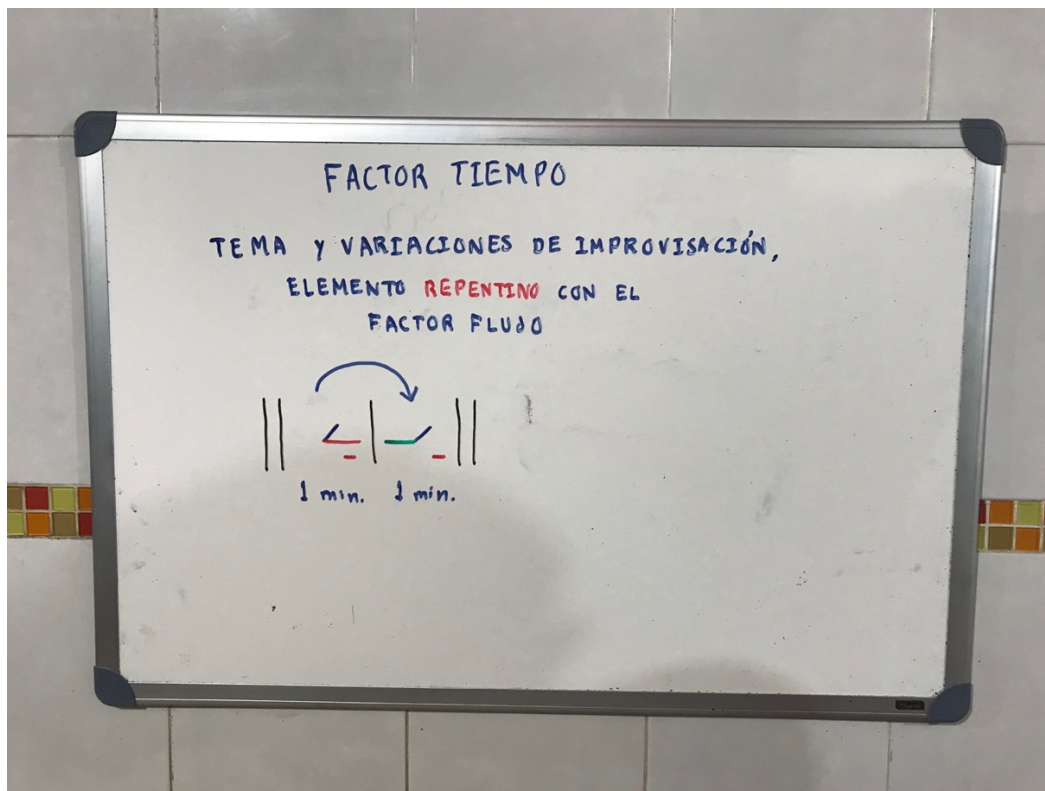 FACTOR TIEMPO
TEMA Y VARIACIONES DE IMPROVISACIÓN,
ELEMENTO REPENTINO CON EL
FACTOR FLUJO
1 min. 1 min.